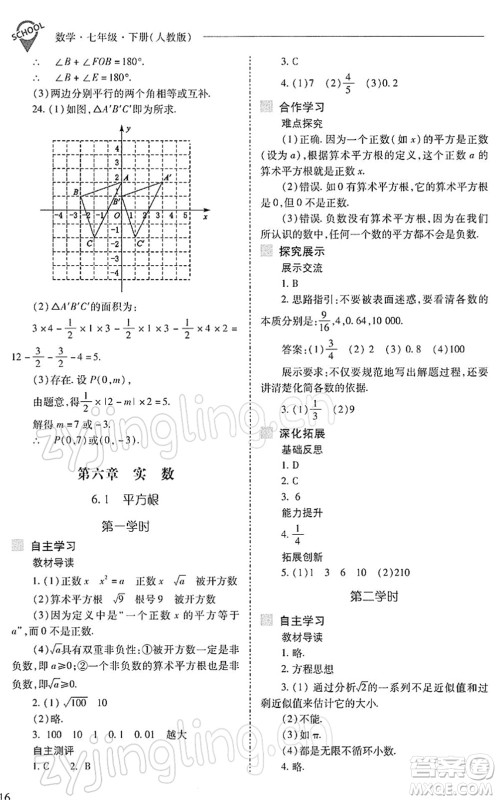 SCHOOL
数学·七年级·下册(人教版)
∴ ∠B + ∠FOB = 180°.
∴ ∠B + ∠E = 180°.
(3)两边分别平行的两个角相等或互补.
24. (1)如图,△A′B′C′即为所求.
y
4
3
2
1
A
A′
B
B′
-4 -3 -2 -1 O 1 2 3 4 x
-1
-2
C
C′
-3
-4
(2)△A′B′C′的面积为:
3×4 - 1/2 ×1×3 - 1/2 ×1×3 - 1/2 ×2×4 =
12 - 3/2 - 3/2 - 4 = 5.
(3)存在. 设 P(0,m),
由题意,得 1/2 × |2-m| ×2 = 5.
解得 m = 7 或 -3.
∴ P(0,7)或(0,-3).
第六章 实 数
6.1 平方根
第一学时
自主学习
教材导读
1. (1)正数 x x² = a 正数 x √a 被开方数
(2)算术平方根 √9 根号 9 被开方数
(3)因为定义中是“一个正数 x 的平方等于
a”,而 0 不是正数.
(4)√a具有双重非负性:①被开方数一定是非
负数,即 a≥0;②一个非负数的算术平方根也是非
负数,即√a≥0.
2. (1)√100 10
(2)略.
3. 100 10 1 0.1 0.01 越大
自主测评
1. A 2. B
3. C
4. (1)7 (2) 4/5 (3)2
合作学习
难点探究
(1)正确. 因为一个正数(如 x)的平方是正数
(设为 a),根据算术平方根的定义,这个正数 a 的
算术平方根就是正数 x.
(2)错误. 如 0 有算术平方根,但 0 不是正数.
(3)错误. 负数没有算术平方根,因为在我们
所认识的数中,任何一个数的平方都不会是负数.
探究展示
展示交流
1. 0
2. 思路指引:不要被表面迷惑,要看到各数的
本质分别是: 9/16 ,4,0.64,10 000.
答案:(1) 3/4 (2)2 (3)0.8 (4)100
展示要求:不仅要规范地写出解题过程,还要
讲清楚化简各数的依据.
3. (1) 1/3 (2)9
深化拓展
基础反思
1. D
2. C
3. 6
能力提升
4. 1/4
拓展创新
5. (1)1 3 6 10 (2)210
第二学时
自主学习
教材导读
1. 略.
2. 方程思想
3. (1)通过分析√2的一系列不足近似值和过剩
近似值来估计它的大小.
(2)不能.
(3)√2是无限不循环小数.
4. 略.
16
zyjl.cn
zyjingling.com
答案圈